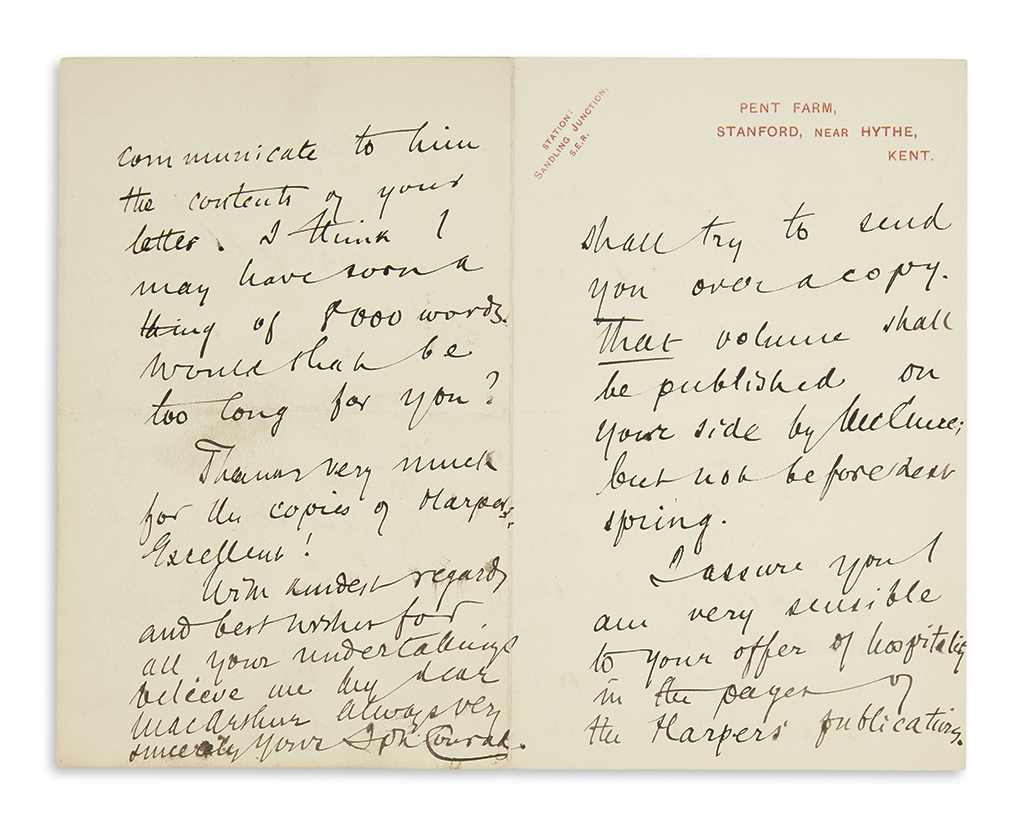 communicate to him
the contents of your
letter. I think I
may have soon a
thing of 8000 words.
Would that be
too long for you?
Thanks very much
for the copies of Harpers.
Excellent!
With kindest regards
and best wishes for
all your undertakings
believe me my dear
MacArthur always very
sincerely yours Jph Conrad.
STATION:
SANDLING JUNCTION,
S.E.R.
PENT FARM,
STANFORD, NEAR HYTHE,
KENT.
shall try to send
you over a copy.
That volume shall
be published on
your side by McClure;
but not before next
spring.
I assure you I
am very sensible
to your offer of hospitality
in the pages of
the Harpers' publications.